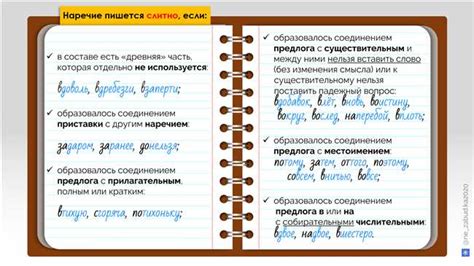 Наречие пишется слитно, если:
в составе есть «древняя» часть,
которая отдельно не используется:
вдоволь, вдребезги, взаперти;
образовалось соединением
приставки с другим наречием:
задаром, заранее, донельзя;
образовалось соединением
предлога с прилагательным,
полным или кратким:
втихую, сгоряча, потихоньку;
образовалось соединением
предлога с существительным и
между ними нельзя вставить слово
(без изменения смысла) или к
существительному нельзя
поставить падежный вопрос:
вдобавок, влёт, вновь, воистину,
вокруг, вослед, наперебой, вплоть;
образовалось соединением
предлога с местоимением:
потому, затем, оттого, поэтому,
совсем, вничью, вовсе;
образовалось соединением
предлога в или на
с собирательными числительными:
вдвое, надвое, вшестеро.
@ne_zabud.ka2020